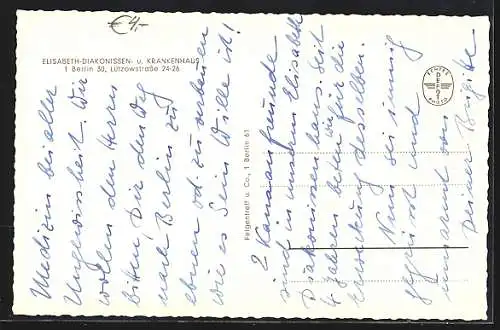 € 4,-
ELISABETH-DIAKONISSEN- u. KRANKENHAUS
1 Berlin 30, Lützowstraße 24-26
Medizin bei aller
Ungewissheit. Wir
wollen den Herrn
bitten, Dir den Weg
nach Berlin zu
ebnen od. zu
wie es Sein Wille ist!
Felgentreff u. Co., 1 Berlin 61
2 Kanaanfreunde
sind in unserm Elisabeth
Diakonissenhaus. Seit
4 Jahren beten wir für die
Erweckung desselben.
Nun sei innig
gegrüsst und
umarmt von
Deiner Brigitte
ECHTES
DEFOT
PHOTO